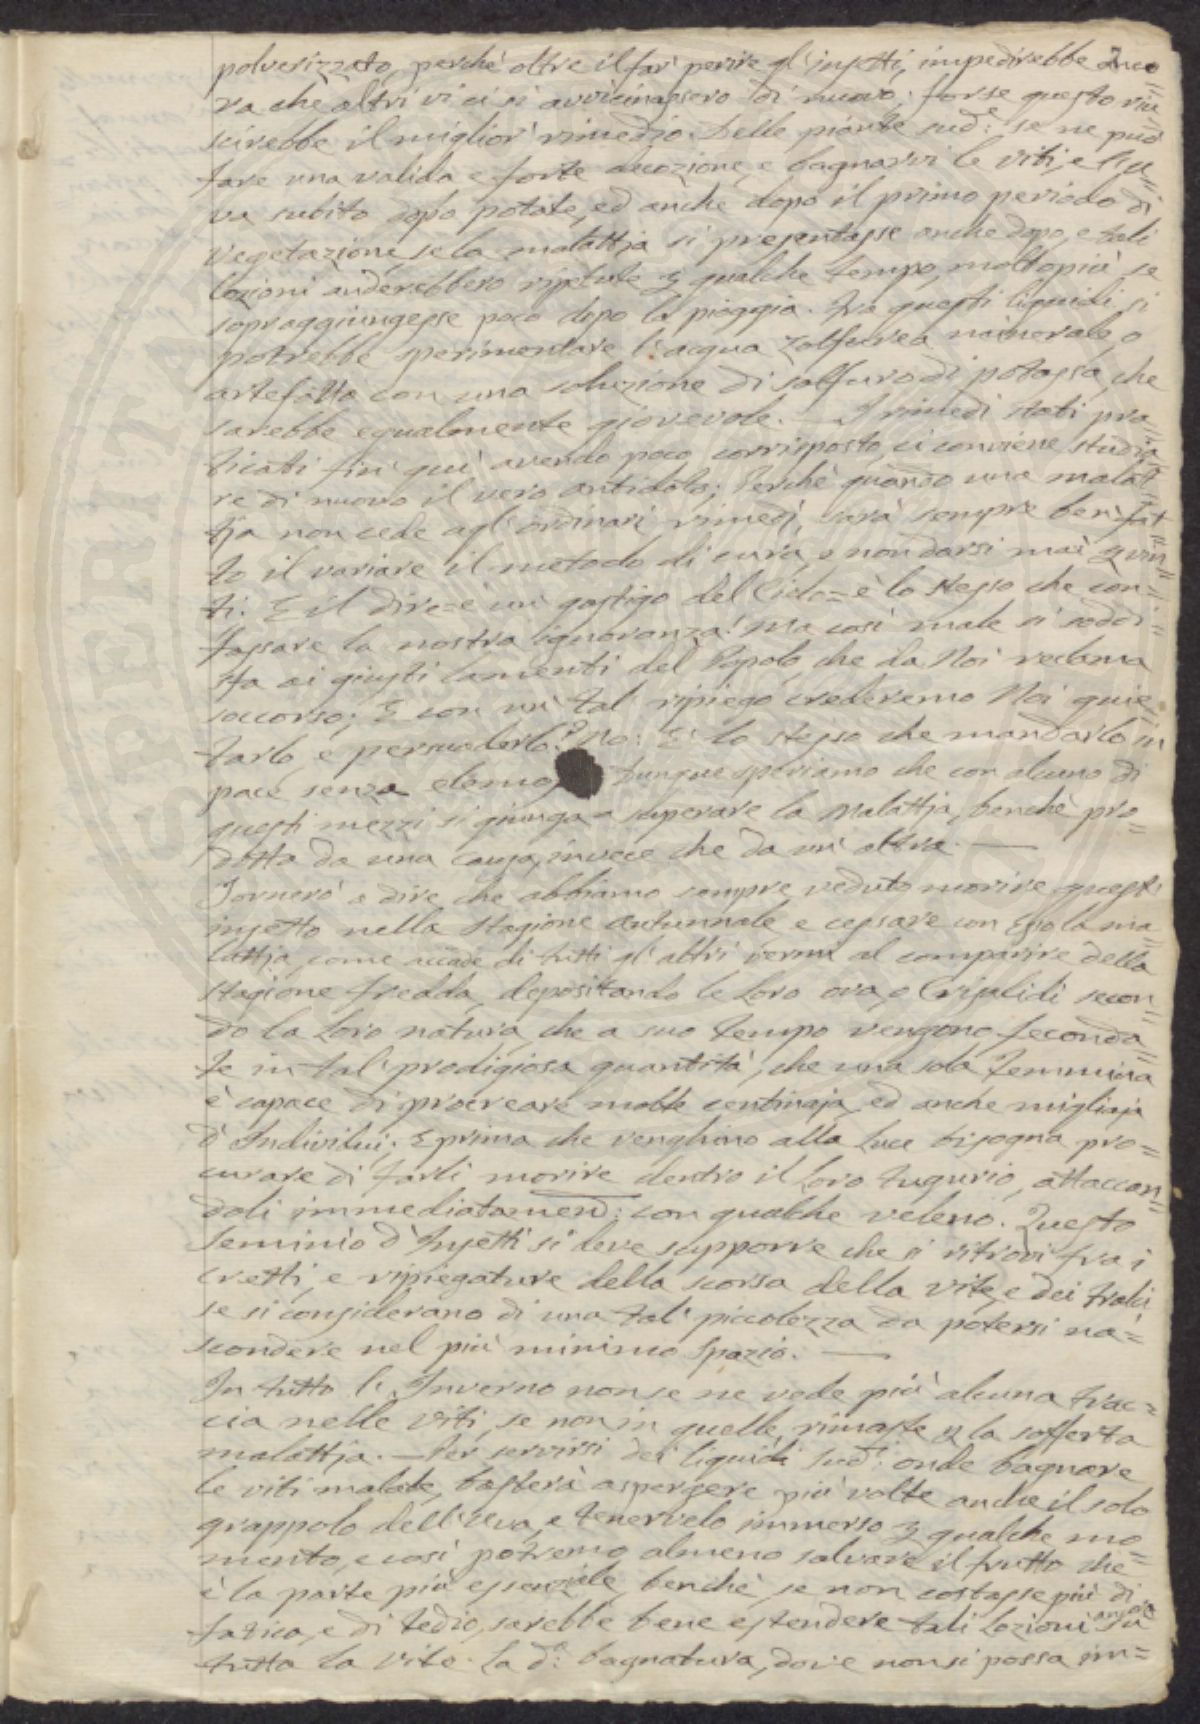 polverizzato, perchè oltre il far' perire gl' insetti, impedirebbe anco
ra che altri vi ci si avvicinassero di nuovo; forse questo riu=
scirebbe il miglior' rimedio. Delle piante sud.e se ne può
fare una valida e forte decozione, e bagnarvi le viti, e l'u=
va subito dopo potate, ed anche dopo il primo periodo di
vegetazione, se la malattja si presentasse anche dopo, e tali
lozioni anderebbero ripetute p qualche tempo, molto più se
sopraggiungesse poco dopo la pioggia. Fra questi liquidi si
potrebbe sperimentare l' acqua zolfurea minerale, o
artefatta con una soluzione di solfuro di potassa, che
sarebbe egualmente giovevole. — I rimedi stati pra=
ticati fin' quì avendo poco corrisposto, ci conviene studia=
re di nuovo il vero antidoto; Perchè quando una malat=
tja non cede agl' ordinari rimedi, sarà sempre ben' fat=
to il variare il metodo di cura, e non darsi mai p vin=
ti. E il dire = è un' gastigo del Cielo = è lo stesso che con=
fessare la nostra ignoranza! Ma così male si soddi=
sfa ai giusti lamenti del Popolo, che da Noi reclama
soccorso; E con un' tal' ripiego crederemo Noi quie=
tarlo, e persuaderlo? No: E' lo stesso che mandarlo in
pace senza elemo Dunque speriamo che con alcuno di
questi mezzi si giunga a superare la Malattja, benchè pro=
dotta da una causa, invece che da un' altra. —
Tornerò a dire che abbiamo sempre veduto morire questo
insetto nella stagione autunnale e cessare con Esso la ma=
lattja, come accade di tutti gl' altri vermi al comparire della
stagione fredda, depositando le loro ova, o Crisalidi secon=
do la loro natura, che a suo tempo vengono feconda=
te in tal' prodigiosa quantità, che una sola Femmina
è capace di procreare molte centinaja, ed anche migliaja
d' Individui; E prima che venghino alla luce bisogna pro=
curare di farli morire dentro il loro tugurio, attaccan=
doli immediatamend: con qualche veleno. Questo
seminìo d' Insetti si deve supporre che si ritrovi fra i
cretti, e ripiegature della scorsa della Vite, e dei tralci
se si considerano di una tal' piccolezza da potersi na=
scondere nel più minimo spazio. —
In tutto l' Inverno non se ne vede più alcuna trac=
cia nelle viti, se non in quelle, rimaste p la sofferta
malattja. — Per servirsi dei liquidi sud.i onde bagnare
le viti malate, basterà aspergere più volte anche il solo
grappolo dell' Uva, e tenervelo immerso p qualche mo=
mento, e così potremo almeno salvare il frutto che
è la parte più essenziale, benchè, se non costasse più di
fatica, e di tedio, sarebbe bene estendere tali lozioni ancora su
tutta la vite. La d.a bagnatura, dove non si possa im=